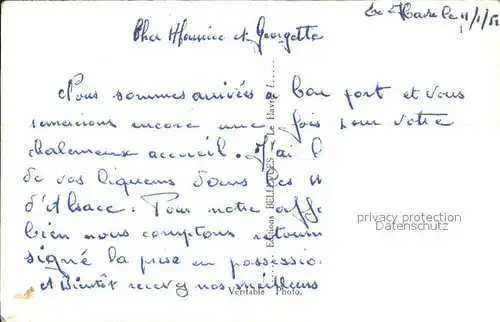 Le Havre le 11/1/52
Cher Maurice et Georgette
Nous sommes arrivés à bon port et vous
remercions encore une fois pour votre
chaleureux accueil. J'ai l
de vos liqueurs dans les v
d'Alsace. Pour notre affe
bien nous comptons retourn
signé la prise en possessio
A Bientôt recevez nos meilleurs
Editions BELLEVUES Le Havre
Véritable Photo.
privacy protection
Datenschutz